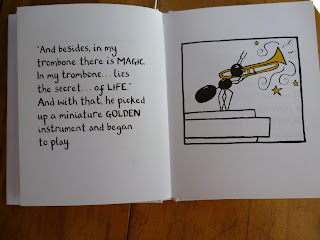 "And besides, in my
trombone there is MAGIC.
In my trombone... lies
the secret... of LIFE."
And with that, he picked
up a miniature GOLDEN
instrument and began
to play.